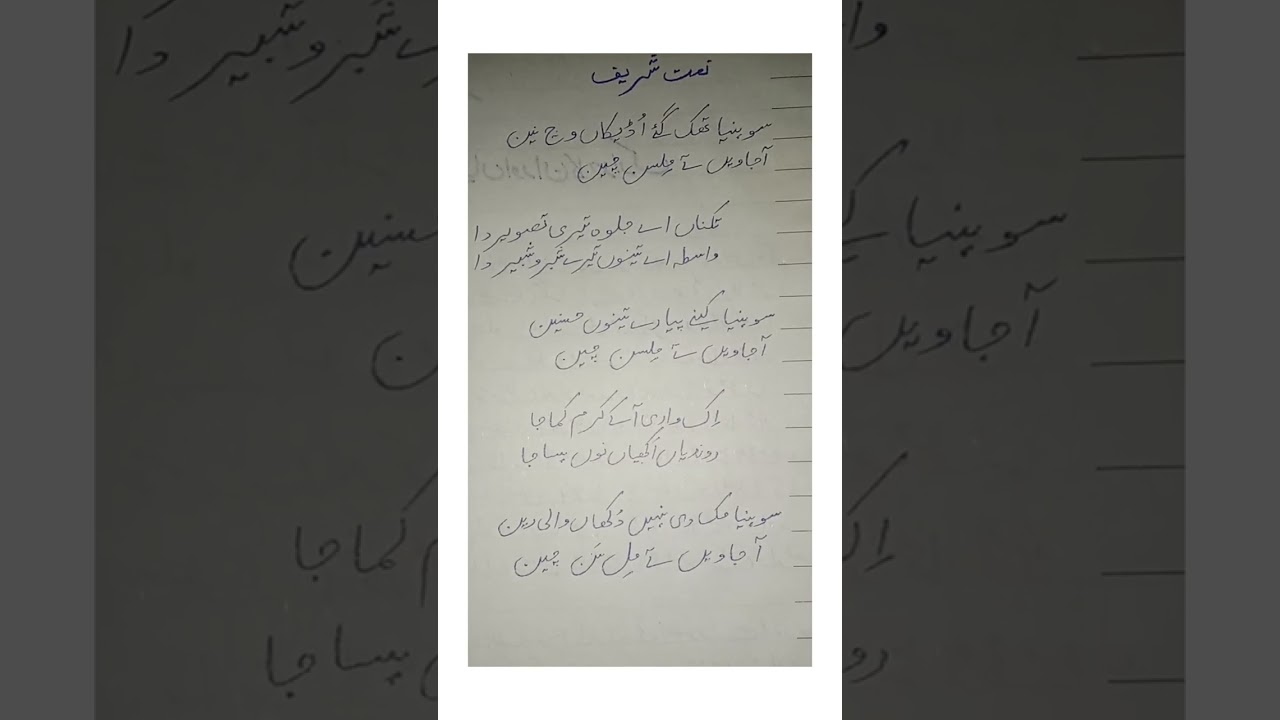 نعت شریف
سوہنیا تھک گئے اُڈیکاں وچ نین
آجاویں تے مِلسن چین
تکناں اے جلوہ تیری تصویر دا
واسطہ اے تینوں تیرے شبر و شبیر دا
سوہنیا کینے پیارے تینوں حسنین
آجاویں تے مِلسن چین
اِک واری آ کے کرم کما جا
روندیاں اکھیاں نوں ہسا جا
سوہنیا مک دی نہیں دُکھاں والی رین
آجاویں تے مِل سَن چین